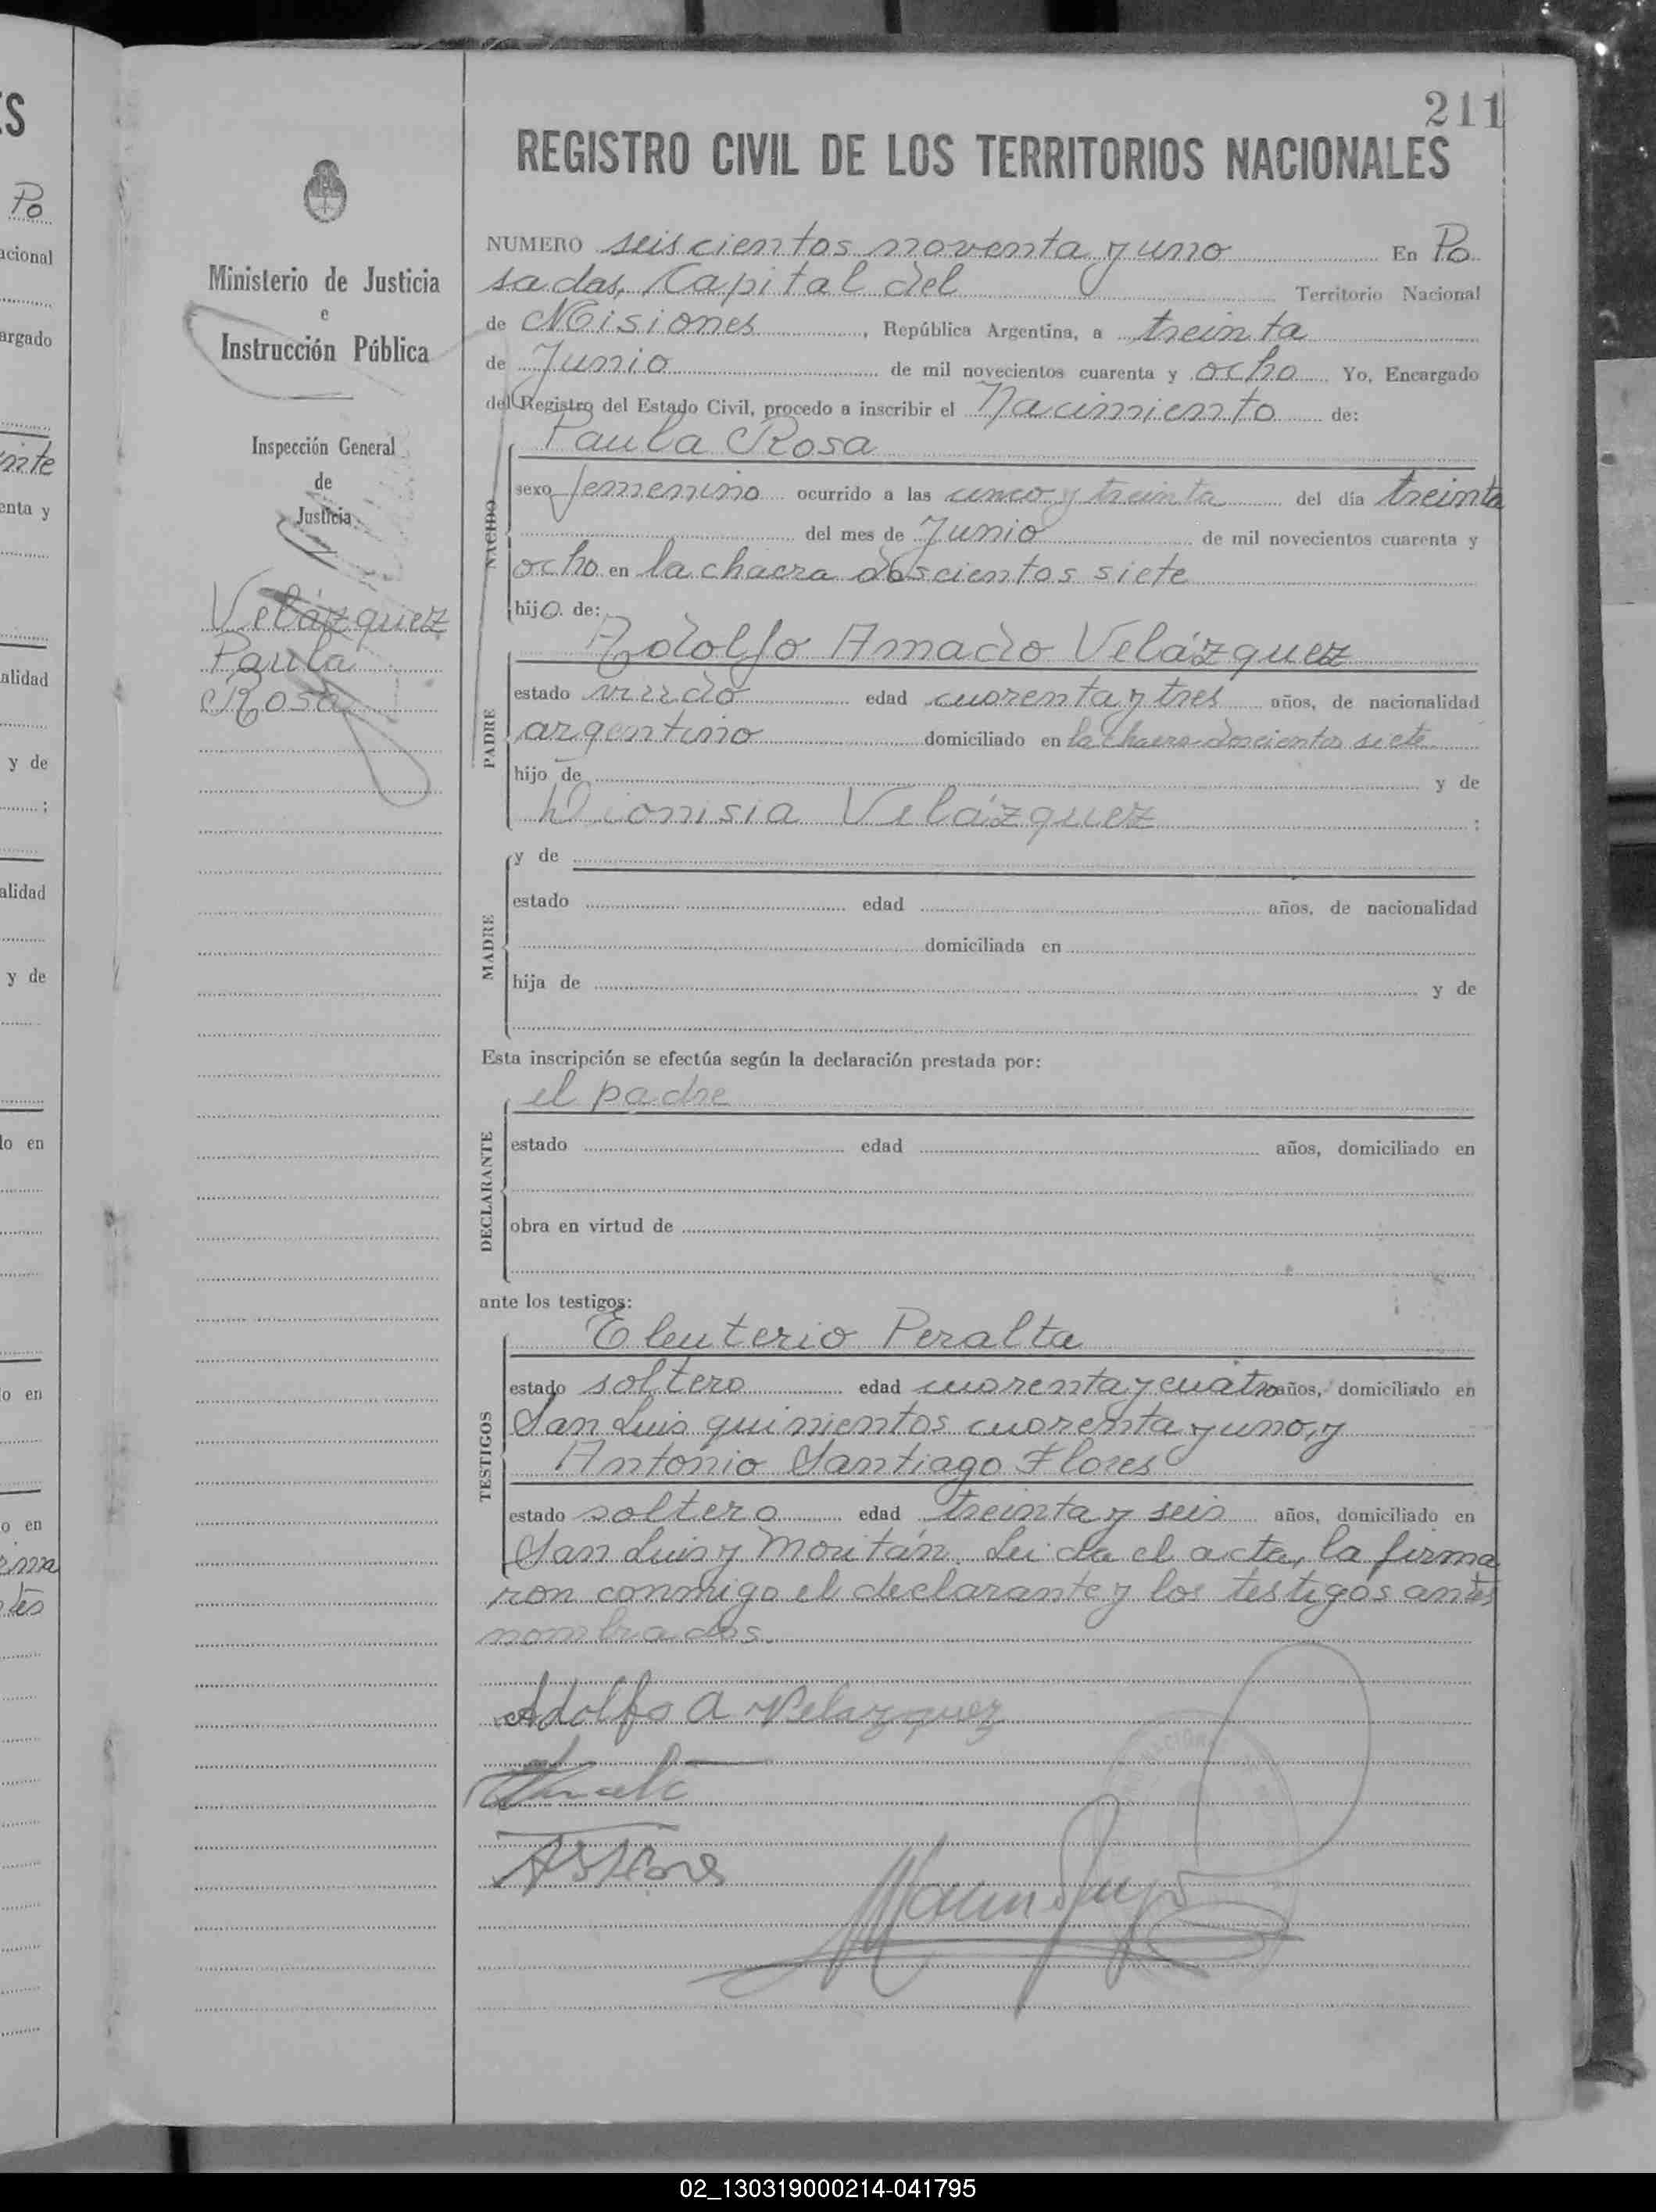 211
REGISTRO CIVIL DE LOS TERRITORIOS NACIONALES
Ministerio de Justicia
e
Instrucción Pública
Inspección General
de
Justicia
Velázquez
Paula
Rosa
NUMERO seiscientos noventa y uno En Po
sadas, Capital del Territorio Nacional
de Misiones, República Argentina, a treinta
de Junio de mil novecientos cuarenta y ocho Yo, Encargado
del Registro del Estado Civil, procedo a inscribir el Nacimiento de:
Paula Rosa
NACIDO
sexo femenino ocurrido a las cinco y treinta del día treinta
del mes de Junio de mil novecientos cuarenta y
ocho en la chacra doscientos siete
hijo de:
PADRE
Adolfo Amado Velázquez
estado viudo edad cuarenta y tres años, de nacionalidad
argentino domiciliado en la chacra doscientos siete
hijo de y de
Dionisia Velázquez ;
MADRE
y de
estado edad años, de nacionalidad
domiciliada en
hija de y de
Esta inscripción se efectúa según la declaración prestada por:
el padre
DECLARANTE
estado edad años, domiciliado en
obra en virtud de
ante los testigos:
TESTIGOS
Eleuterio Peralta
estado soltero edad cuarenta y cuatro años, domiciliado en
San Luis quinientos cuarenta y uno, y
Antonio Santiago Flores
estado soltero edad treinta y seis años, domiciliado en
San Luis y Moritán. Leida el acta, la firma
ron conmigo el declarante y los testigos antes
nombrados.
Adolfo A Velazquez
02_130319000214-041795